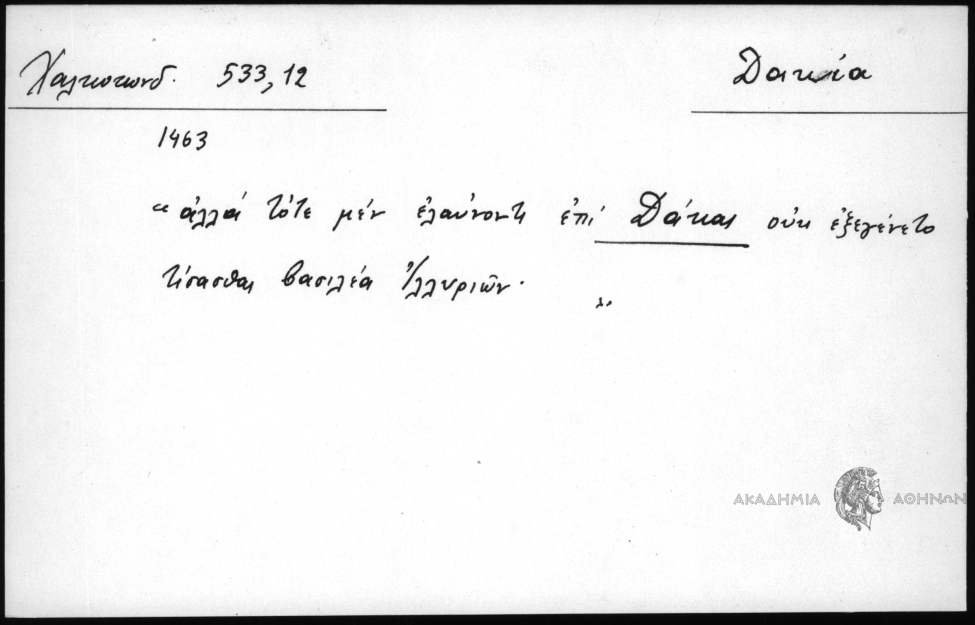 Χαλκοκονδ. 533,12
Δακία
1463
"ἀλλά τότε μέν ἐλαύνοντι ἐπί Δάκας οὐκ ἐξεγένετο
τίσασθαι βασιλέα Ἰλλυριῶν.
ΑΚΑΔΗΜΙΑ ΑΘΗΝΩΝ